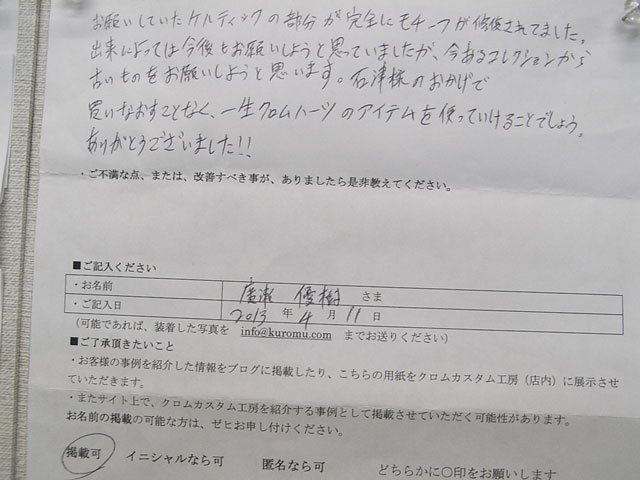 お願いしていたケルティックの部分が完全にモチーフが修復されてました。
出来によっては今後もお願いしようと思っていましたが、今あるコレクションから
古いものをお願いしようと思います。石津様のおかげで
買いなおすことなく、一生クロムハーツのアイテムを使っていけることでしょう。
ありがとうございました!!
・ご不満な点、または、改善すべき事が、ありましたら是非教えてください。
■ご記入ください
・お名前 廣瀬 優樹 さま
・ご記入日 2013 年 4 月 11 日
(可能であれば、装着した写真を info@kuromu.com までお送りください)
■ご了承頂きたいこと
・お客様の事例を紹介した情報をブログに掲載したり、こちらの用紙をクロムカスタム工房（店内）に展示させ
ていただきます。
・またサイト上で、クロムカスタム工房を紹介する事例として掲載させていただく可能性があります。
お名前の掲載の可能な方は、ゼヒお申し付けください。
掲載可 イニシャルなら可 匿名なら可 どちらかに○印をお願いします